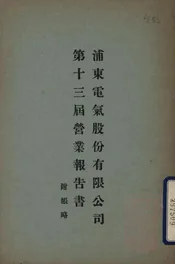 浦東電氣股份有限公司
第十三屆營業報告書